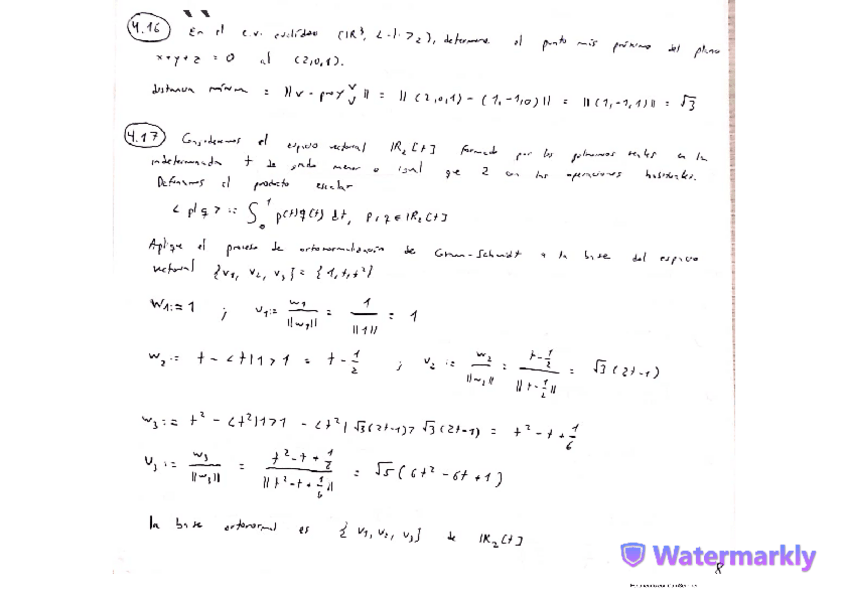 4.16 En el e.v. euclídeo (IR³, <·|·>₂), determine el punto más próximo del plano
x+y+z = 0 al (2,0,1).
distancia mínima = ||v - proy_U^v|| = ||(2,0,1) - (1,-1,0)|| = ||(1,-1,1)|| = √3
4.17 Consideremos el espacio vectorial IR₂[t] formado por los polinomios reales en la
indeterminada t de grado menor o igual que 2 con las operaciones habituales.
Definimos el producto escalar
<p|q> := ∫₀¹ p(t)q(t) dt, p,q ∈ IR₂[t]
Aplique el proceso de ortonormalización de Gram-Schmidt a la base del espacio
vectorial {v₁, v₂, v₃} = {1, t, t²}
W₁ := 1 ; v₁ := w₁/||w₁|| = 1/||1|| = 1
w₂ := t - <t|1>1 = t - 1/2 ; v₂ := w₂/||w₂|| = (t - 1/2)/||t - 1/2|| = √3(2t-1)
w₃ := t² - <t²|1>1 - <t²|√3(2t-1)>√3(2t-1) = t² - t + 1/6
v₃ := w₃/||w₃|| = (t² - t + 1/6)/||t² - t + 1/6|| = √5(6t² - 6t + 1)
la base ortonormal es {v₁, v₂, v₃} de IR₂[t]
Watermarkly
8